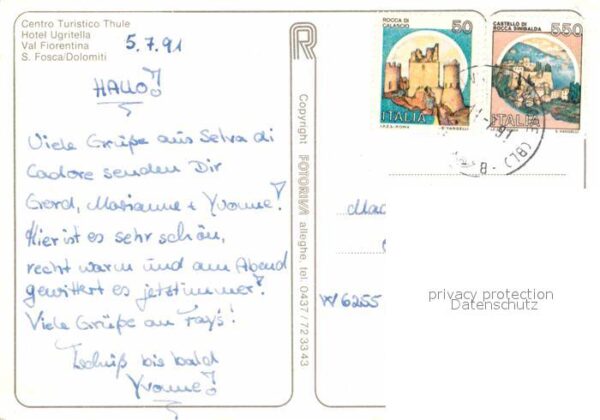 Centro Turistico Thule
Hotel Ugritella
Val Fiorentina
S. Fosca/Dolomiti
5.7.91
HALLO!
Viele Grüße aus Selva di
Cadore senden Dir
Gerd, Marianne + Yvonne!
Hier ist es sehr schön,
recht warm und am Abend
gewittert es jetzt immer!
Viele Grüße an Fays!
Tschüß bis bald
Yvonne!
R
Copyright FOTORIVA alleghe, tel. 0437/723343
ROCCA DI
CALASCIO
50
ITALIA
I.P.Z.S. - ROMA
E. VANGELLI
CASTELLO DI
ROCCA SINIBALDA
550
ITALIA
E. VANGELLI
(BL)
W 6255
privacy protection
Datenschutz